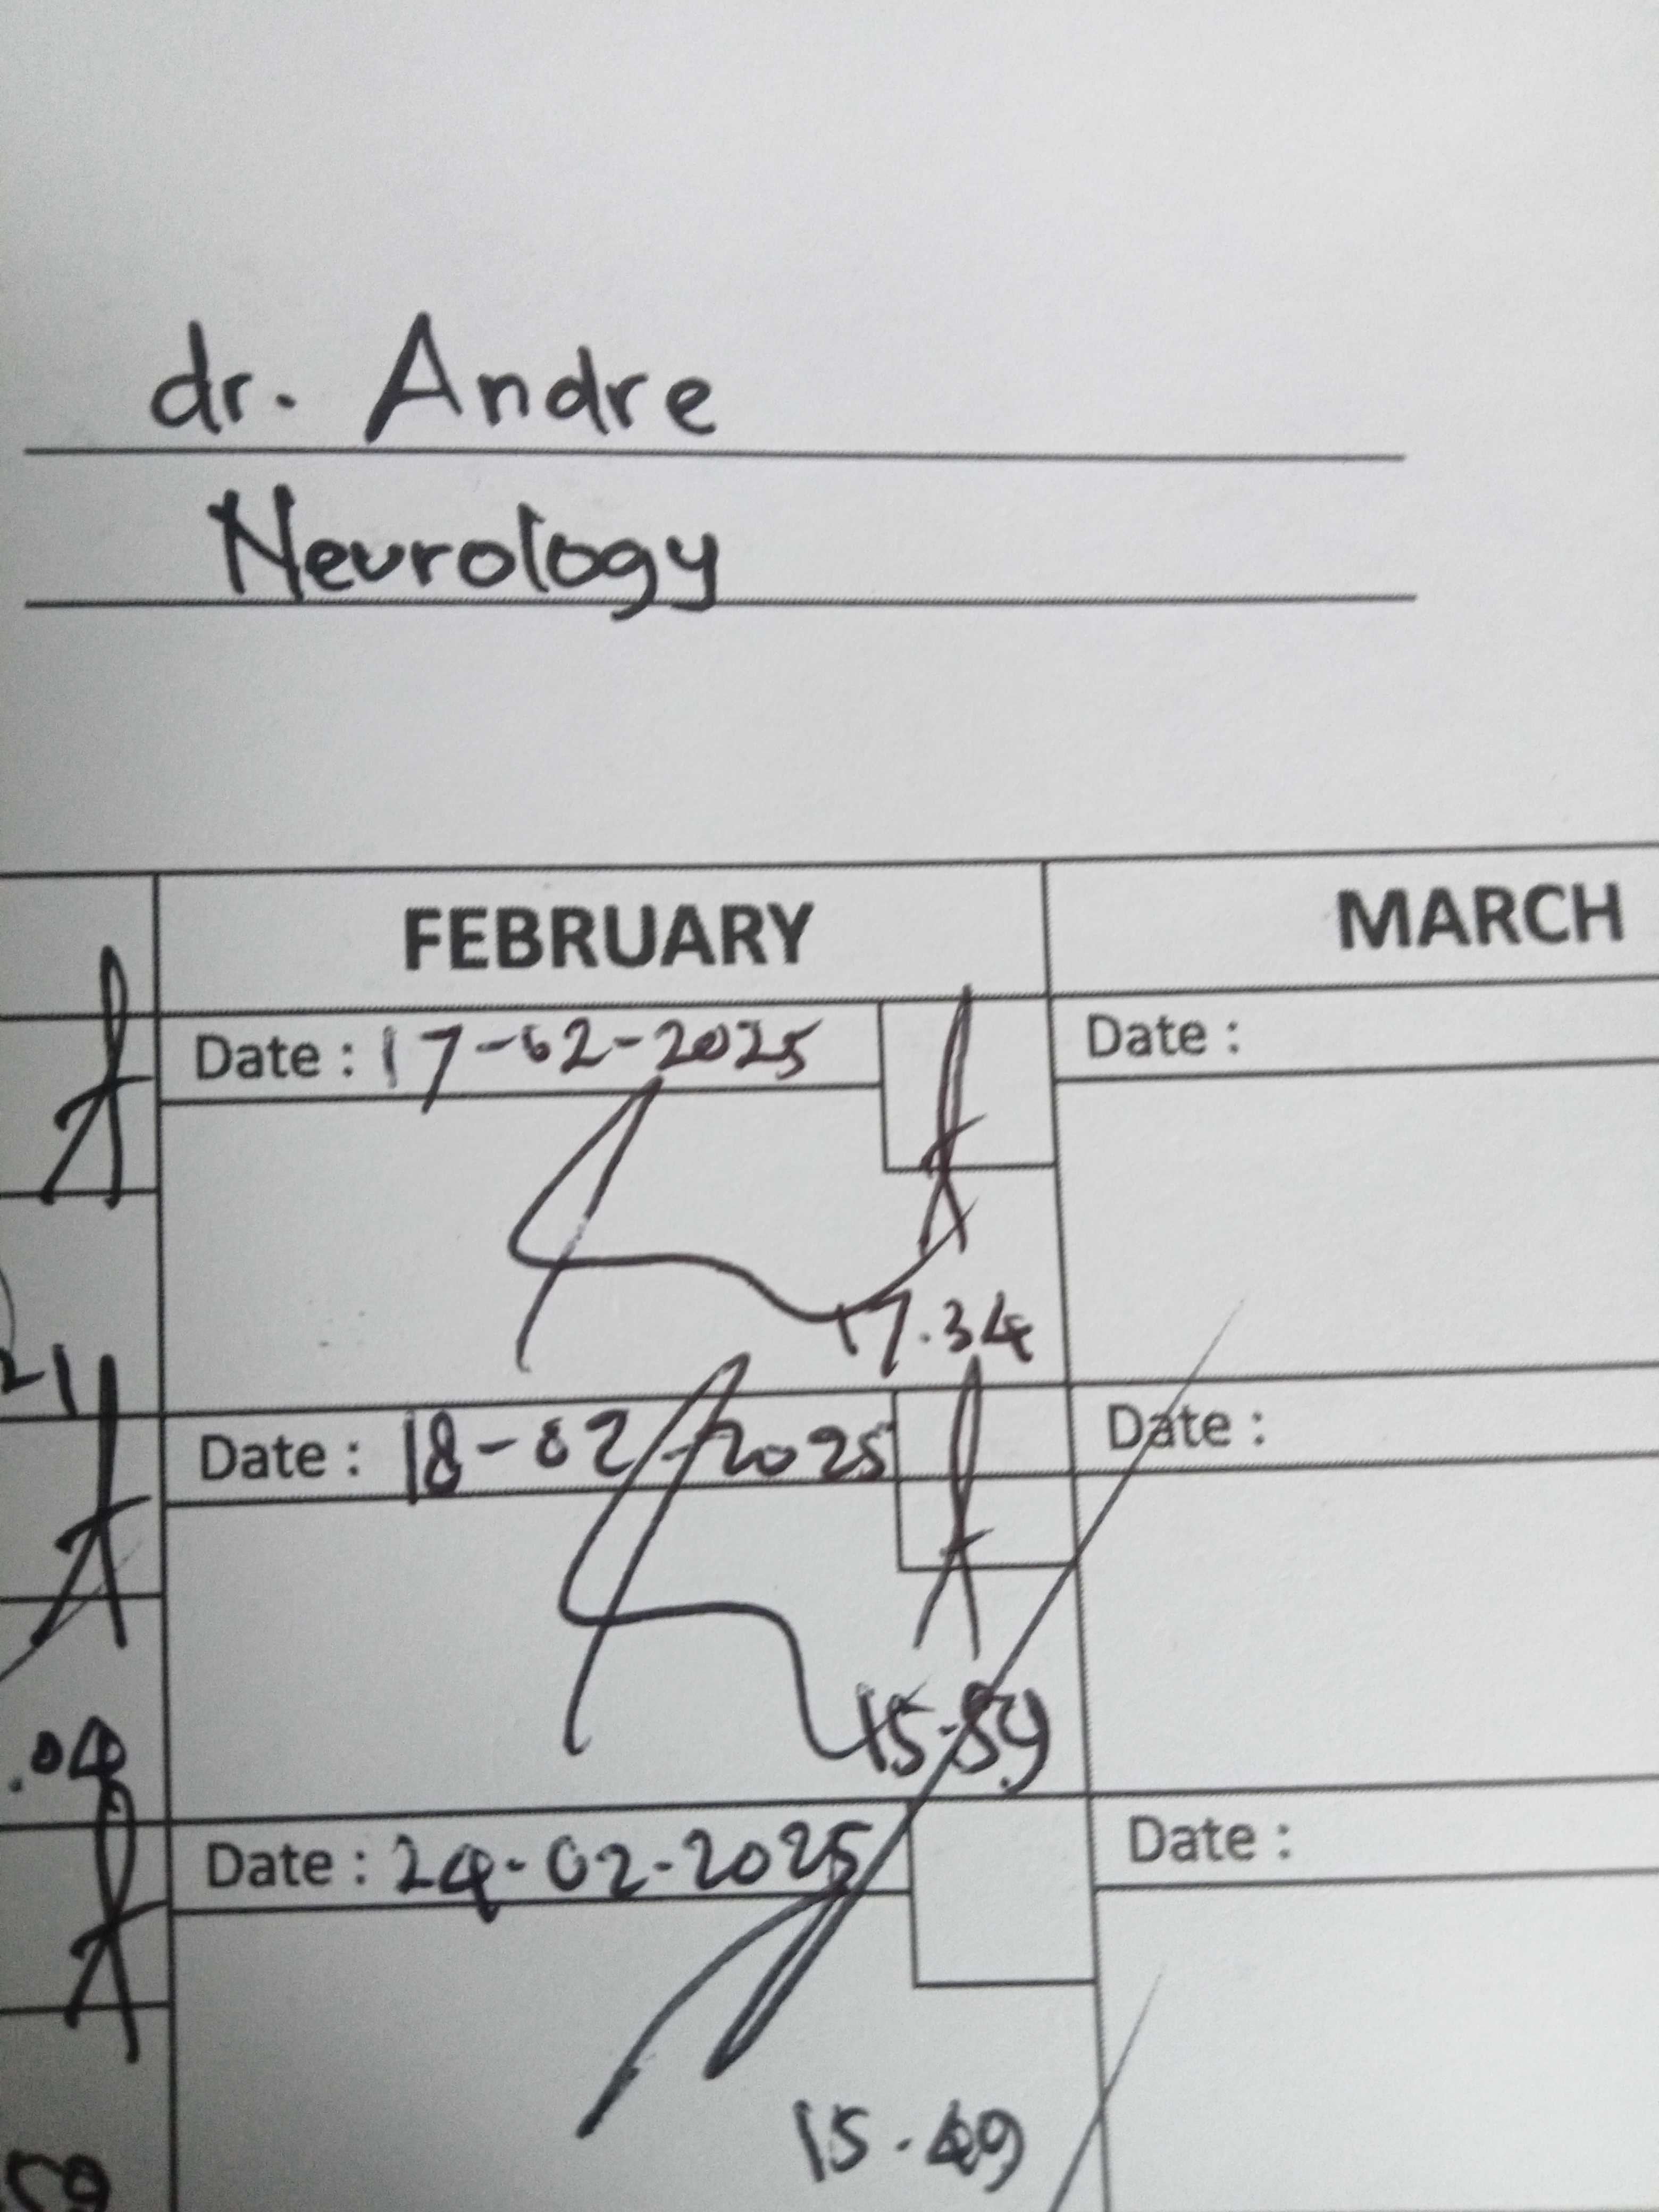 dr. Andre
Neurology
FEBRUARY MARCH
Date : 17-02-2025 Date :
17.34
21
Date : 18-02-2025 Date :
15.59
.04
Date : 24-02-2025 Date :
15.49